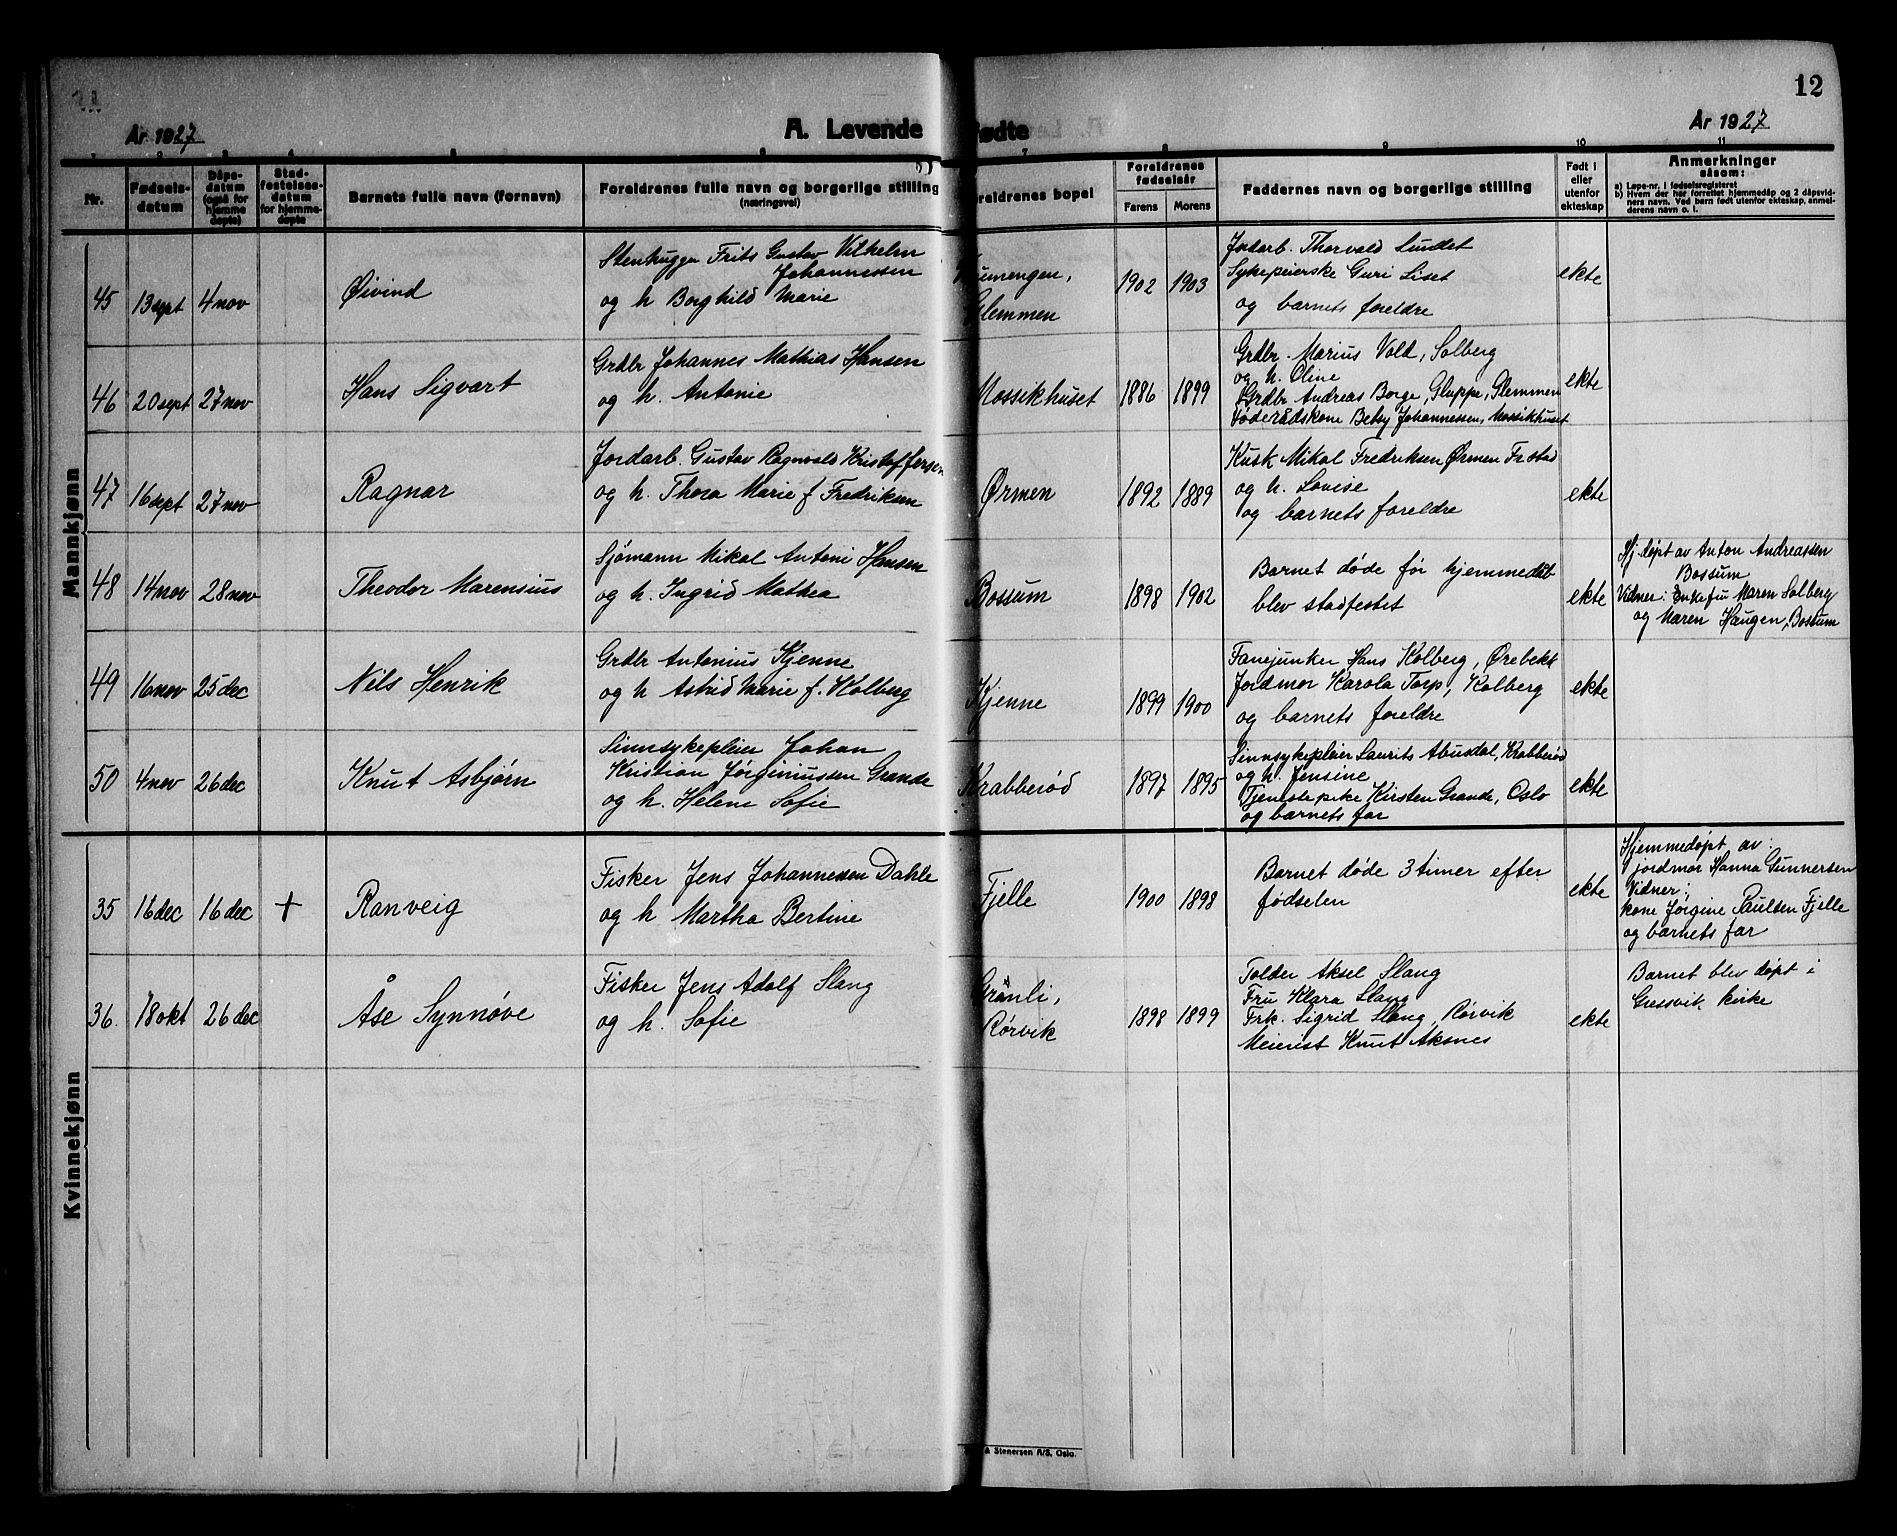 12
År 1927
A. Levende Fødte
År 1927
Nr.
Fødselsdatum
Dåpsdatum (også for hjemmedøpte)
Stadfestelsesdatum for hjemmedøpte
Barnets fulle navn (fornavn)
Foreldrenes fulle navn og borgerlige stilling (næringsvei)
7
Foreldrenes bopel
8
Foreldrenes fødselsår
Farens Morens
9
Faddernes navn og borgerlige stilling
10
Født i eller utenfor ekteskap
11
Anmerkninger såsom:
a) Løpe-nr. i fødselsregisteret
b) Hvem der har forrettet hjemmedåp og 2 dåpsvidners navn. Ved barn født utenfor ekteskap, anmelderens navn o. l.
Mannkjønn
45 13 sept 4 nov Øivind
Stenhugger Frits Gustav Vilhelm
Johannessen
og h Borghild Marie
Glemmen
1902 1903
Jordarb. Thorvald Lundet
Sykepleierske Guri Liset
og barnets foreldre
ekte
46 20 sept 27 nov Hans Sigvart
Grdbr Johannes Mathias Hansen
og h. Antonie
Mossikhuset
1886 1899
Grdbr. Marius Vold, Solberg
og h. Oline
Grdbr Andreas Borge, Gluppe, Glemmen
Føderådskone Betsy Johannessen, Mossikhuset
ekte
47 16 sept 27 nov Ragnar
Jordarb. Gustav Ragnvald Kristoffersen
og h. Thora Marie f Fredriksen
Ørmen
1892 1889
Kusk Mikal Fredriksen Ørmen Fr.stad
og h. Lovise
og barnets foreldre
ekte
48 14 nov 28 nov Theodor Marensius
Sjømann Mikal Antoni Hansen
og h. Ingrid Mathea
Bossum
1898 1902
Barnet døde før hjemmedåb
blev stadfestet
ekte
Hj.døpt av Anton Andreassen
Bossum
Vidner: Enkefru Maren Solberg
og Maren Haugen, Bossum
49 16 nov 25 dec Nils Henrik
Grdbr Antonius Kjenne
og h Astrid Marie f. Kolberg
Kjenne
1899 1900
Fanejunker Hans Kolberg, Ørebekk
Jordmor Karola Torp, Kolberg
og barnets foreldre
ekte
50 4 nov 26 dec Knut Asbjørn
Sinnsykepleier Johan
Kristian Jørginiussen Grande
og h. Helene Sofie
Krabberød
1897 1895
Sinnsykepleier Laurits Abusdal, Krabberød
og h. Jensine
Tjenestepike Kirsten Grande, Oslo
og barnets far
ekte
Kvinnekjønn
35 16 dec 16 dec + Ranveig
Fisker Jens Johannessen Dahle
og h Martha Bertine
Fjelle
1900 1898
Barnet døde 3 timer efter
fødselen
ekte
Hjemmedøpt av:
jordmor Hanna Gunnersen
Vidner:
kone Jørgine Paulsen Fjelle
og barnets far
36. 18 okt 26 dec Åse Synnøve
Fisker Jens Adolf Slang
og h. Sofie
Grønli,
Rørvik
1898 1899
Tolder Aksel Slang
Fru Klara Slang
Frk. Sigrid Slang, Rørvik
Meierist Knut Aksnes
ekte
Barnet blev døpt i
Gressvik kirke
& Stenersen A/S, Oslo.